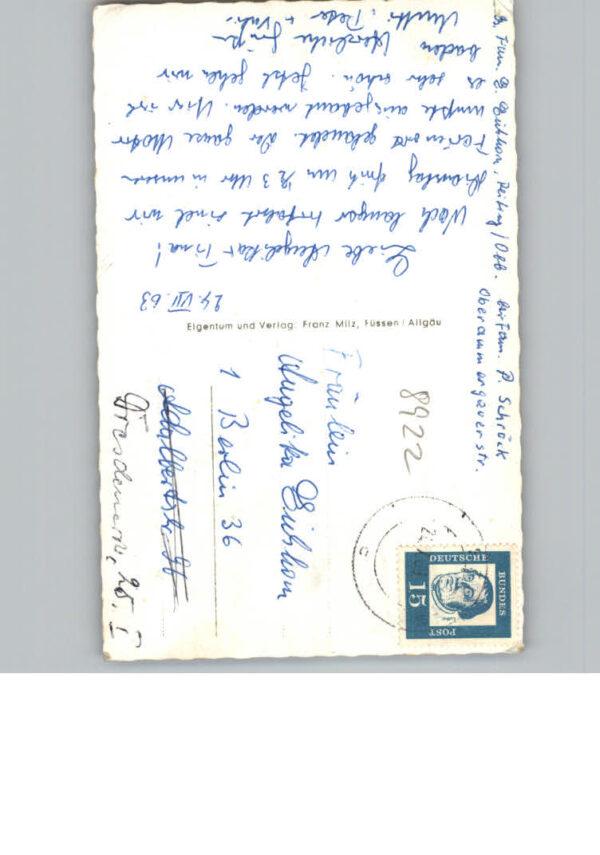 24. VII. 63
Liebe Angelika + Tina!
Nach langer Irrfahrt sind wir
Dienstag früh um 1/2 3 Uhr in unserem
Ferienort gelandet. Der ganze Motor
mußte ausgebaut werden. Hier ist
es sehr schön. Jetzt gehen wir
baden. Herzliche Grüße
Mutti, Peter + Vati
Fam. G. Eichhorn, Peiting / Obb. bei Fam. P. Schröck
Oberammergauer Str.
Eigentum und Verlag: Franz Milz, Füssen / Allgäu
8922
Fräulein
Angelika Eichhorn
1 Berlin 36
Adalbertstr.
Dresdenerstr. 25. I
DEUTSCHE
BUNDES
POST
15